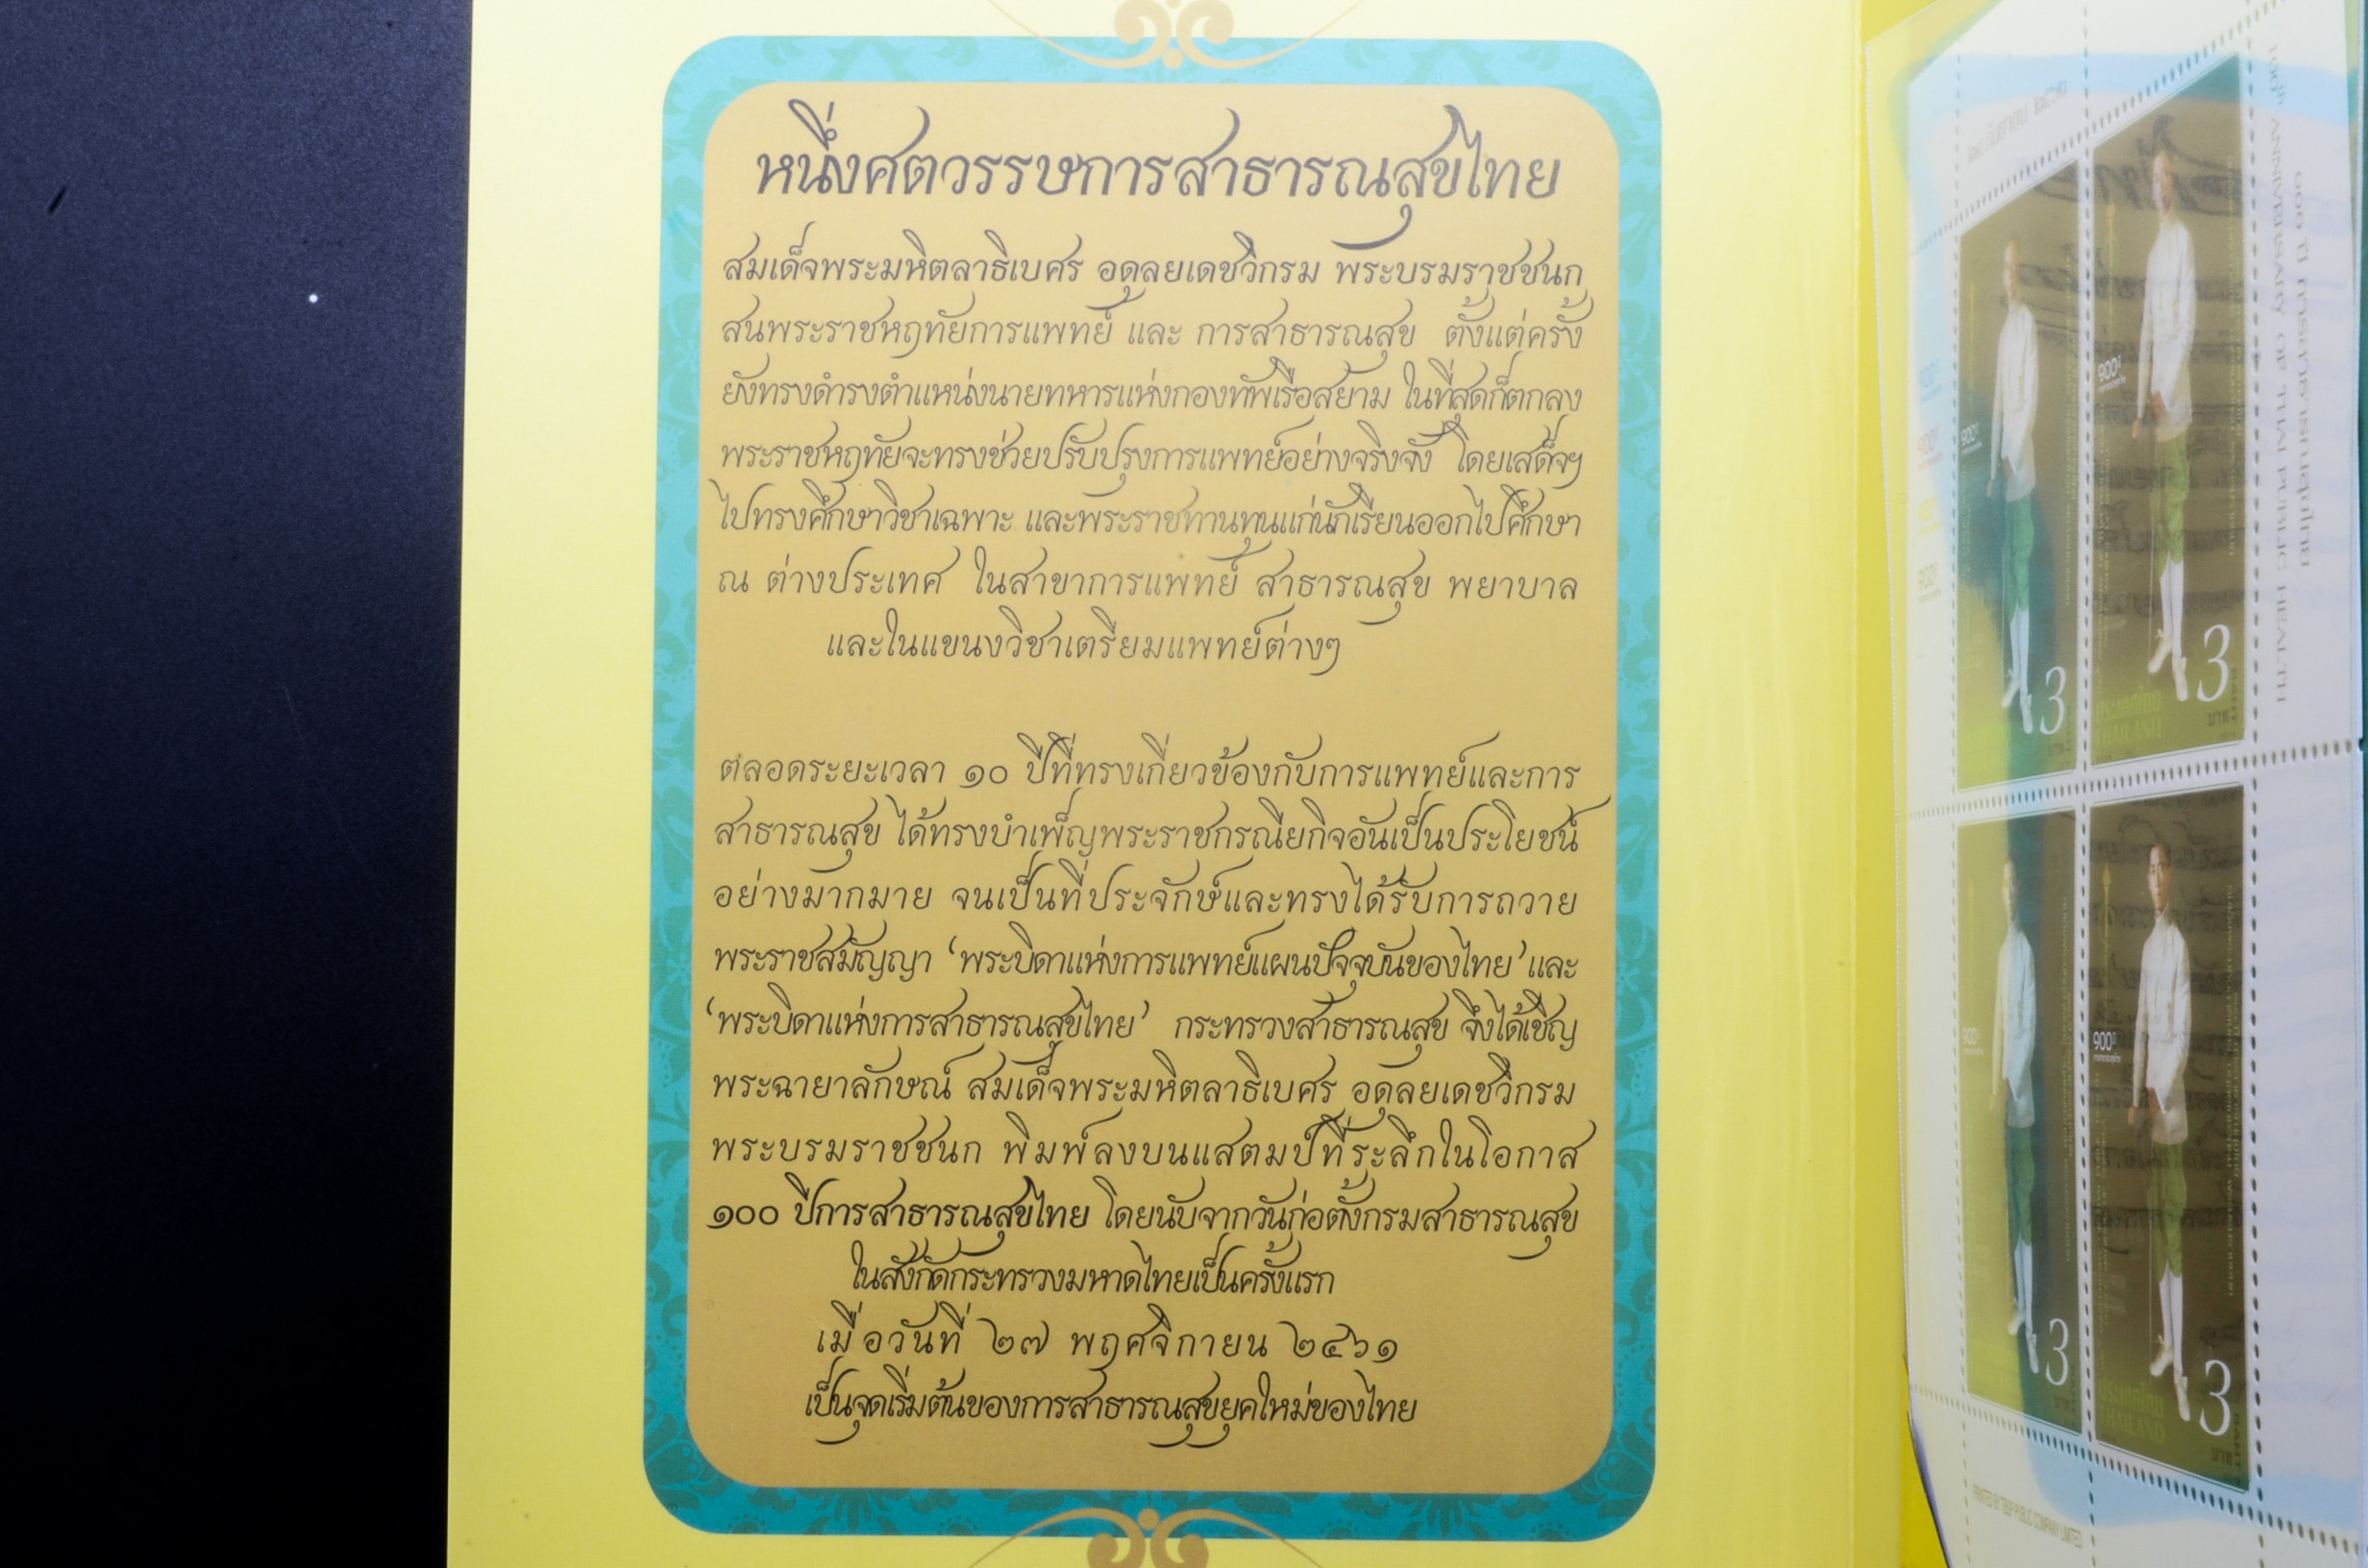 หนึ่งศตวรรษการสาธารณสุขไทย
สมเด็จพระมหิตลาธิเบศร อดุลยเดชวิกรม พระบรมราชชนก
สนพระราชหฤทัยการแพทย์ และ การสาธารณสุข ตั้งแต่ครั้ง
ยังทรงดำรงตำแหน่งนายทหารแห่งกองทัพเรือสยาม ในที่สุดก็ตกลง
พระราชหฤทัยจะทรงช่วยปรับปรุงการแพทย์อย่างจริงจัง โดยเสด็จฯ
ไปทรงศึกษาวิชาเฉพาะ และพระราชทานทุนแก่นักเรียนออกไปศึกษา
ณ ต่างประเทศ ในสาขาการแพทย์ สาธารณสุข พยาบาล
และในแขนงวิชาเตรียมแพทย์ต่างๆ
ตลอดระยะเวลา ๑๐ ปีที่ทรงเกี่ยวข้องกับการแพทย์และการ
สาธารณสุข ได้ทรงบำเพ็ญพระราชกรณียกิจอันเป็นประโยชน์
อย่างมากมาย จนเป็นที่ประจักษ์และทรงได้รับการถวาย
พระราชสมัญญา ‘พระบิดาแห่งการแพทย์แผนปัจจุบันของไทย’ และ
‘พระบิดาแห่งการสาธารณสุขไทย’ กระทรวงสาธารณสุข จึงได้เชิญ
พระฉายาลักษณ์ สมเด็จพระมหิตลาธิเบศร อดุลยเดชวิกรม
พระบรมราชชนก พิมพ์ลงบนแสตมป์ที่ระลึกในโอกาส
๑๐๐ ปีการสาธารณสุขไทย โดยนับจากวันก่อตั้งกรมสาธารณสุข
ในสังกัดกระทรวงมหาดไทยเป็นครั้งแรก
เมื่อวันที่ ๒๗ พฤศจิกายน ๒๔๖๑
เป็นจุดเริ่มต้นของการสาธารณสุขยุคใหม่ของไทย
๑๐๐ ปี การสาธารณสุขไทย
100th ANNIVERSARY OF THAI PUBLIC HEALTH
3
3
3
3